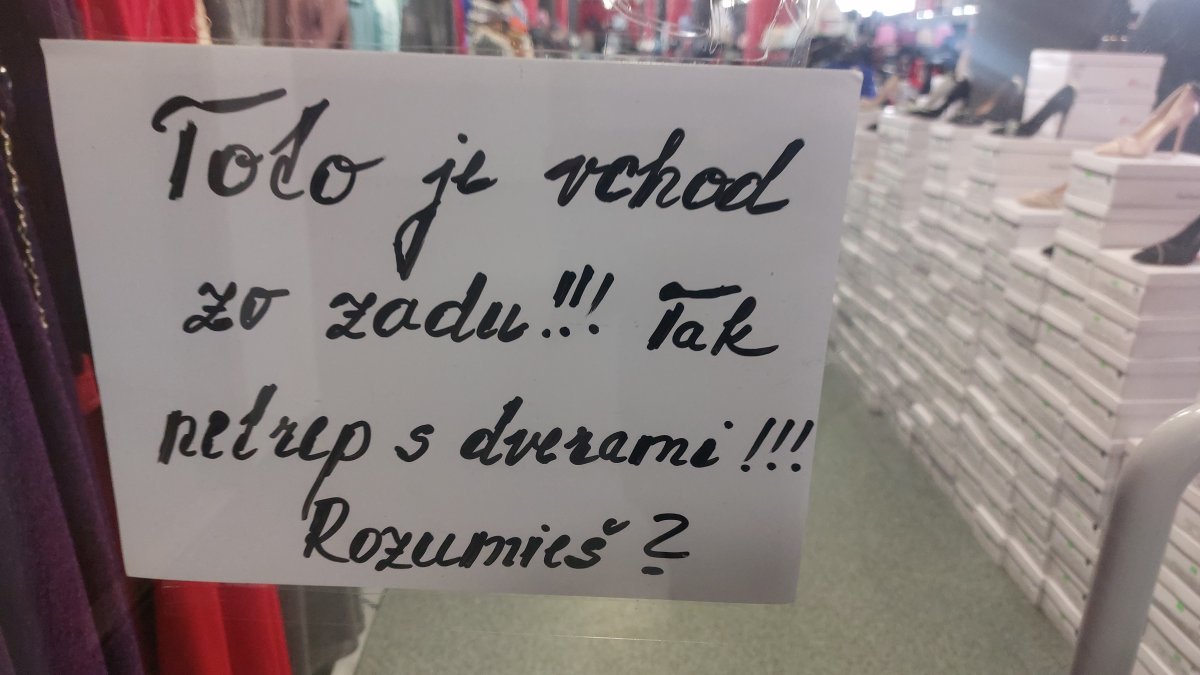 Toto je vchod
zo zadu!!! Tak
netrep s dverami!!!
Rozumieš?